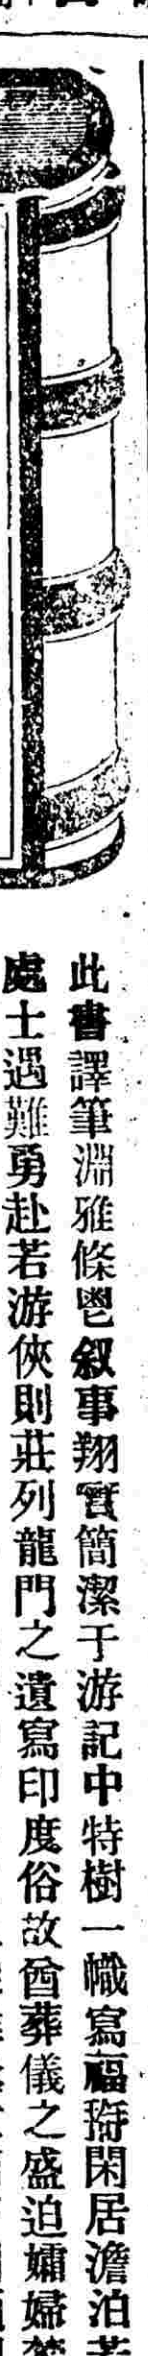 此書譯筆淵雅條鬯叙事翔實簡潔于游記中特樹一幟寫福格閑居澹泊若
處士遇難勇赴若游俠則莊列龍門之遺寫印度俗故酋葬儀之盛迫孀婦